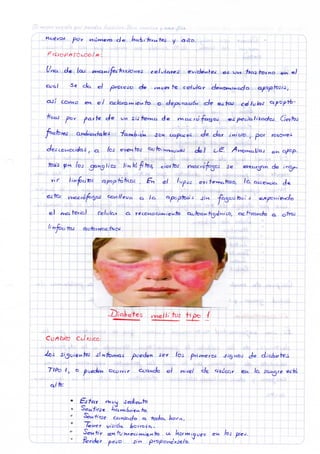 nuevos por número de habitantes y año.
FISIOPATOLOGIA:
Una de las manifestaciones celulares evidentes es un trastorno en el
cual se da el proceso de muerte celular denominado apoptosis,
así como en el aclaramiento o depuración de estas células apoptó-
ticas por parte de un sistema de macrófagos especializados. Ciertos
factores ambientales también son capaces de dar inicio, por razones
desconocidas, a los eventos autoinmunes del LE. Anomalías en apop-
tosis en los ganglios linfáticos, ciertos macrófagos se encargan de inge-
rir linfocitos apoptóticos. En el lupus eritematoso, la ausencia de
estos macrófagos conlleva a la apoptosis sin fagocitosis exponiendo
el material celular a reconocimiento autoantigénico, activando a otros
linfocitos autorreactivos.
Diabetes mellitus tipo 1
CUADRO CLINICO
Los siguientes síntomas pueden ser los primeros signos de diabetes
TIPO 1, o pueden ocurrir cuando el nivel de azúcar en la sangre está
alto:
• Estar muy sediento
• Sentirse hambriento
• Sentirse cansado a toda hora.
• Tener visión borrosa.
• Sentir entumecimiento u hormigueo en los pies.
• Perder peso sin proponérselo.